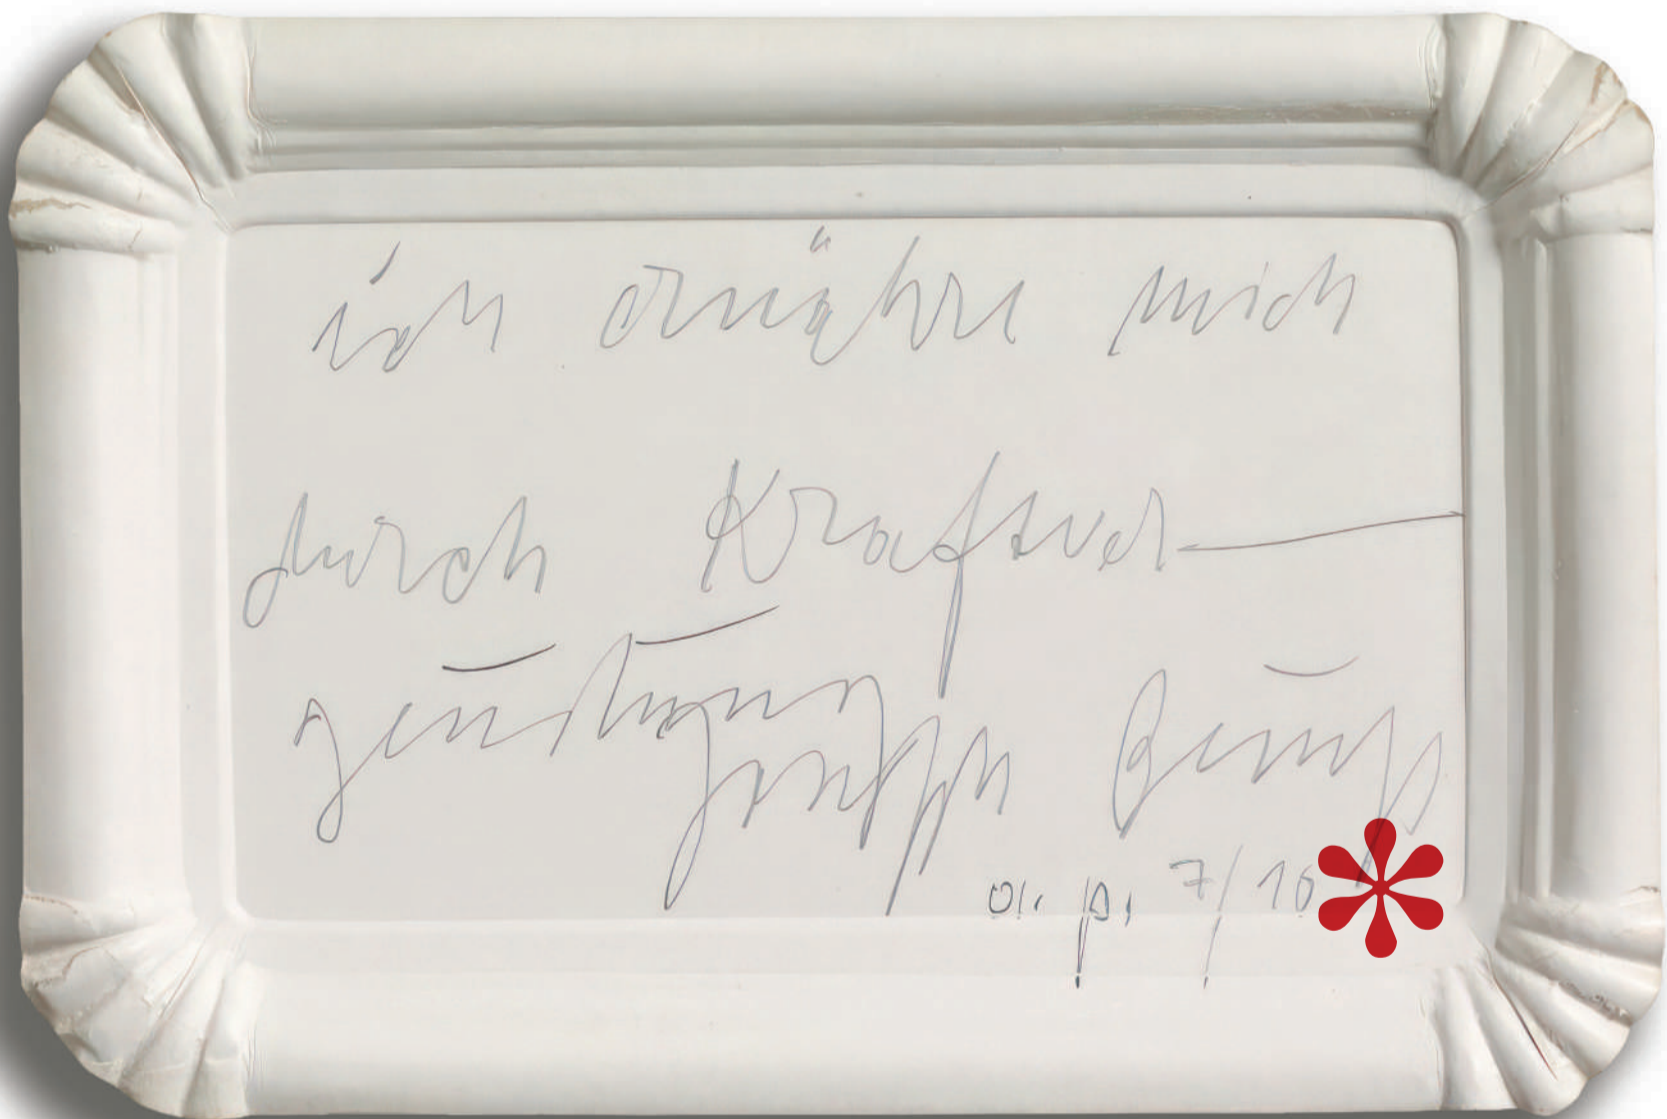 ich ernähre mich
durch Kraftver-
geudung
Joseph Beuys
a. p. 7/10